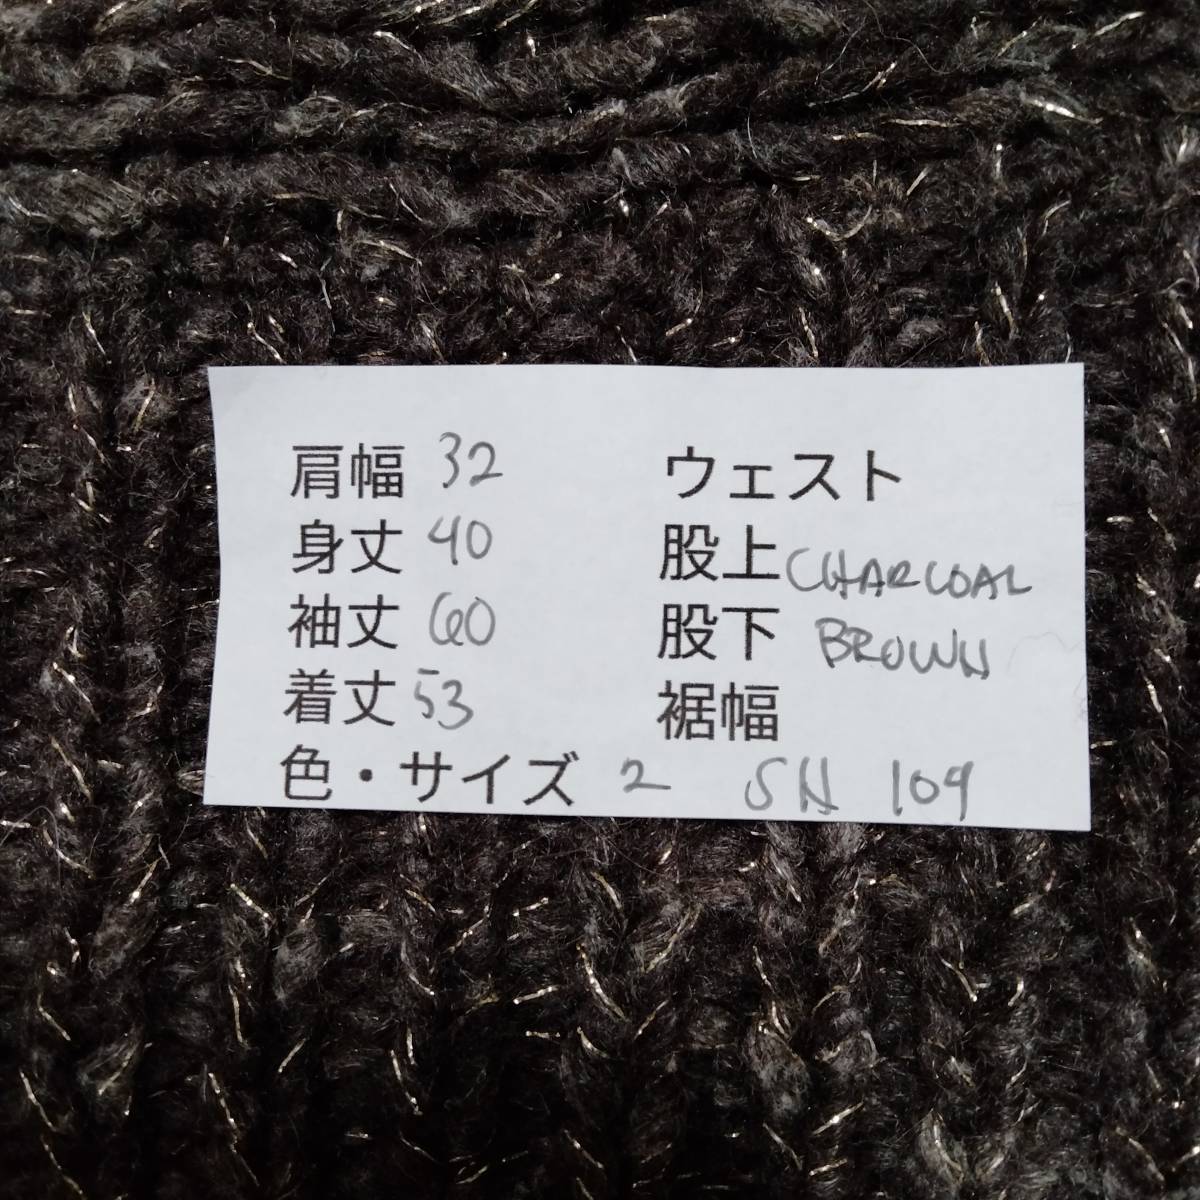 肩幅 32
身丈 40
袖丈 60
着丈 53
ウェスト
股上 CHARCOAL
股下 BROWN
裾幅
色・サイズ 2 SN 109